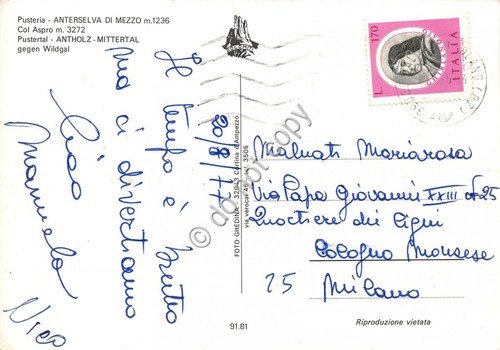 Pusteria - ANTERSELVA DI MEZZO m.1236
Col Aspro m. 3272
Pustertal - ANTHOLZ - MITTERTAL
gegen Wildgal
20/8/77
Il tempo è brutto
ma ci divertiamo
Ciao
Manuela
Nico
FOTO GHEDINA - 32043 Cortina d'Ampezzo
via verocai 45 - n. 3505
L. 170
ITALIA
Malnati Mariarosa
Via Papa Giovanni XXIII n°25
Quartiere dei Cigni
Cologno Monzese
25 Milano
91.81
Riproduzione vietata
do not copy